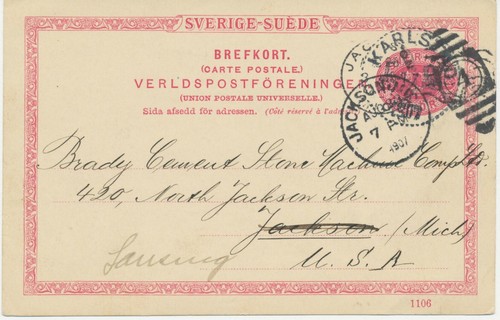 SVERIGE-SUÈDE
BREFKORT.
(CARTE POSTALE.)
VERLDSPOSTFÖRENINGE
(UNION POSTALE UNIVERSELLE.)
Sida afsedd för adressen. (Côté réservé à l'adr
KARLS
JACKSON
7 P
1907
Brady Cement Stone Machine Comp Ltd.
420, North Jackson Str.
Jackson (Mich)
Lansing
U. S. A
1106